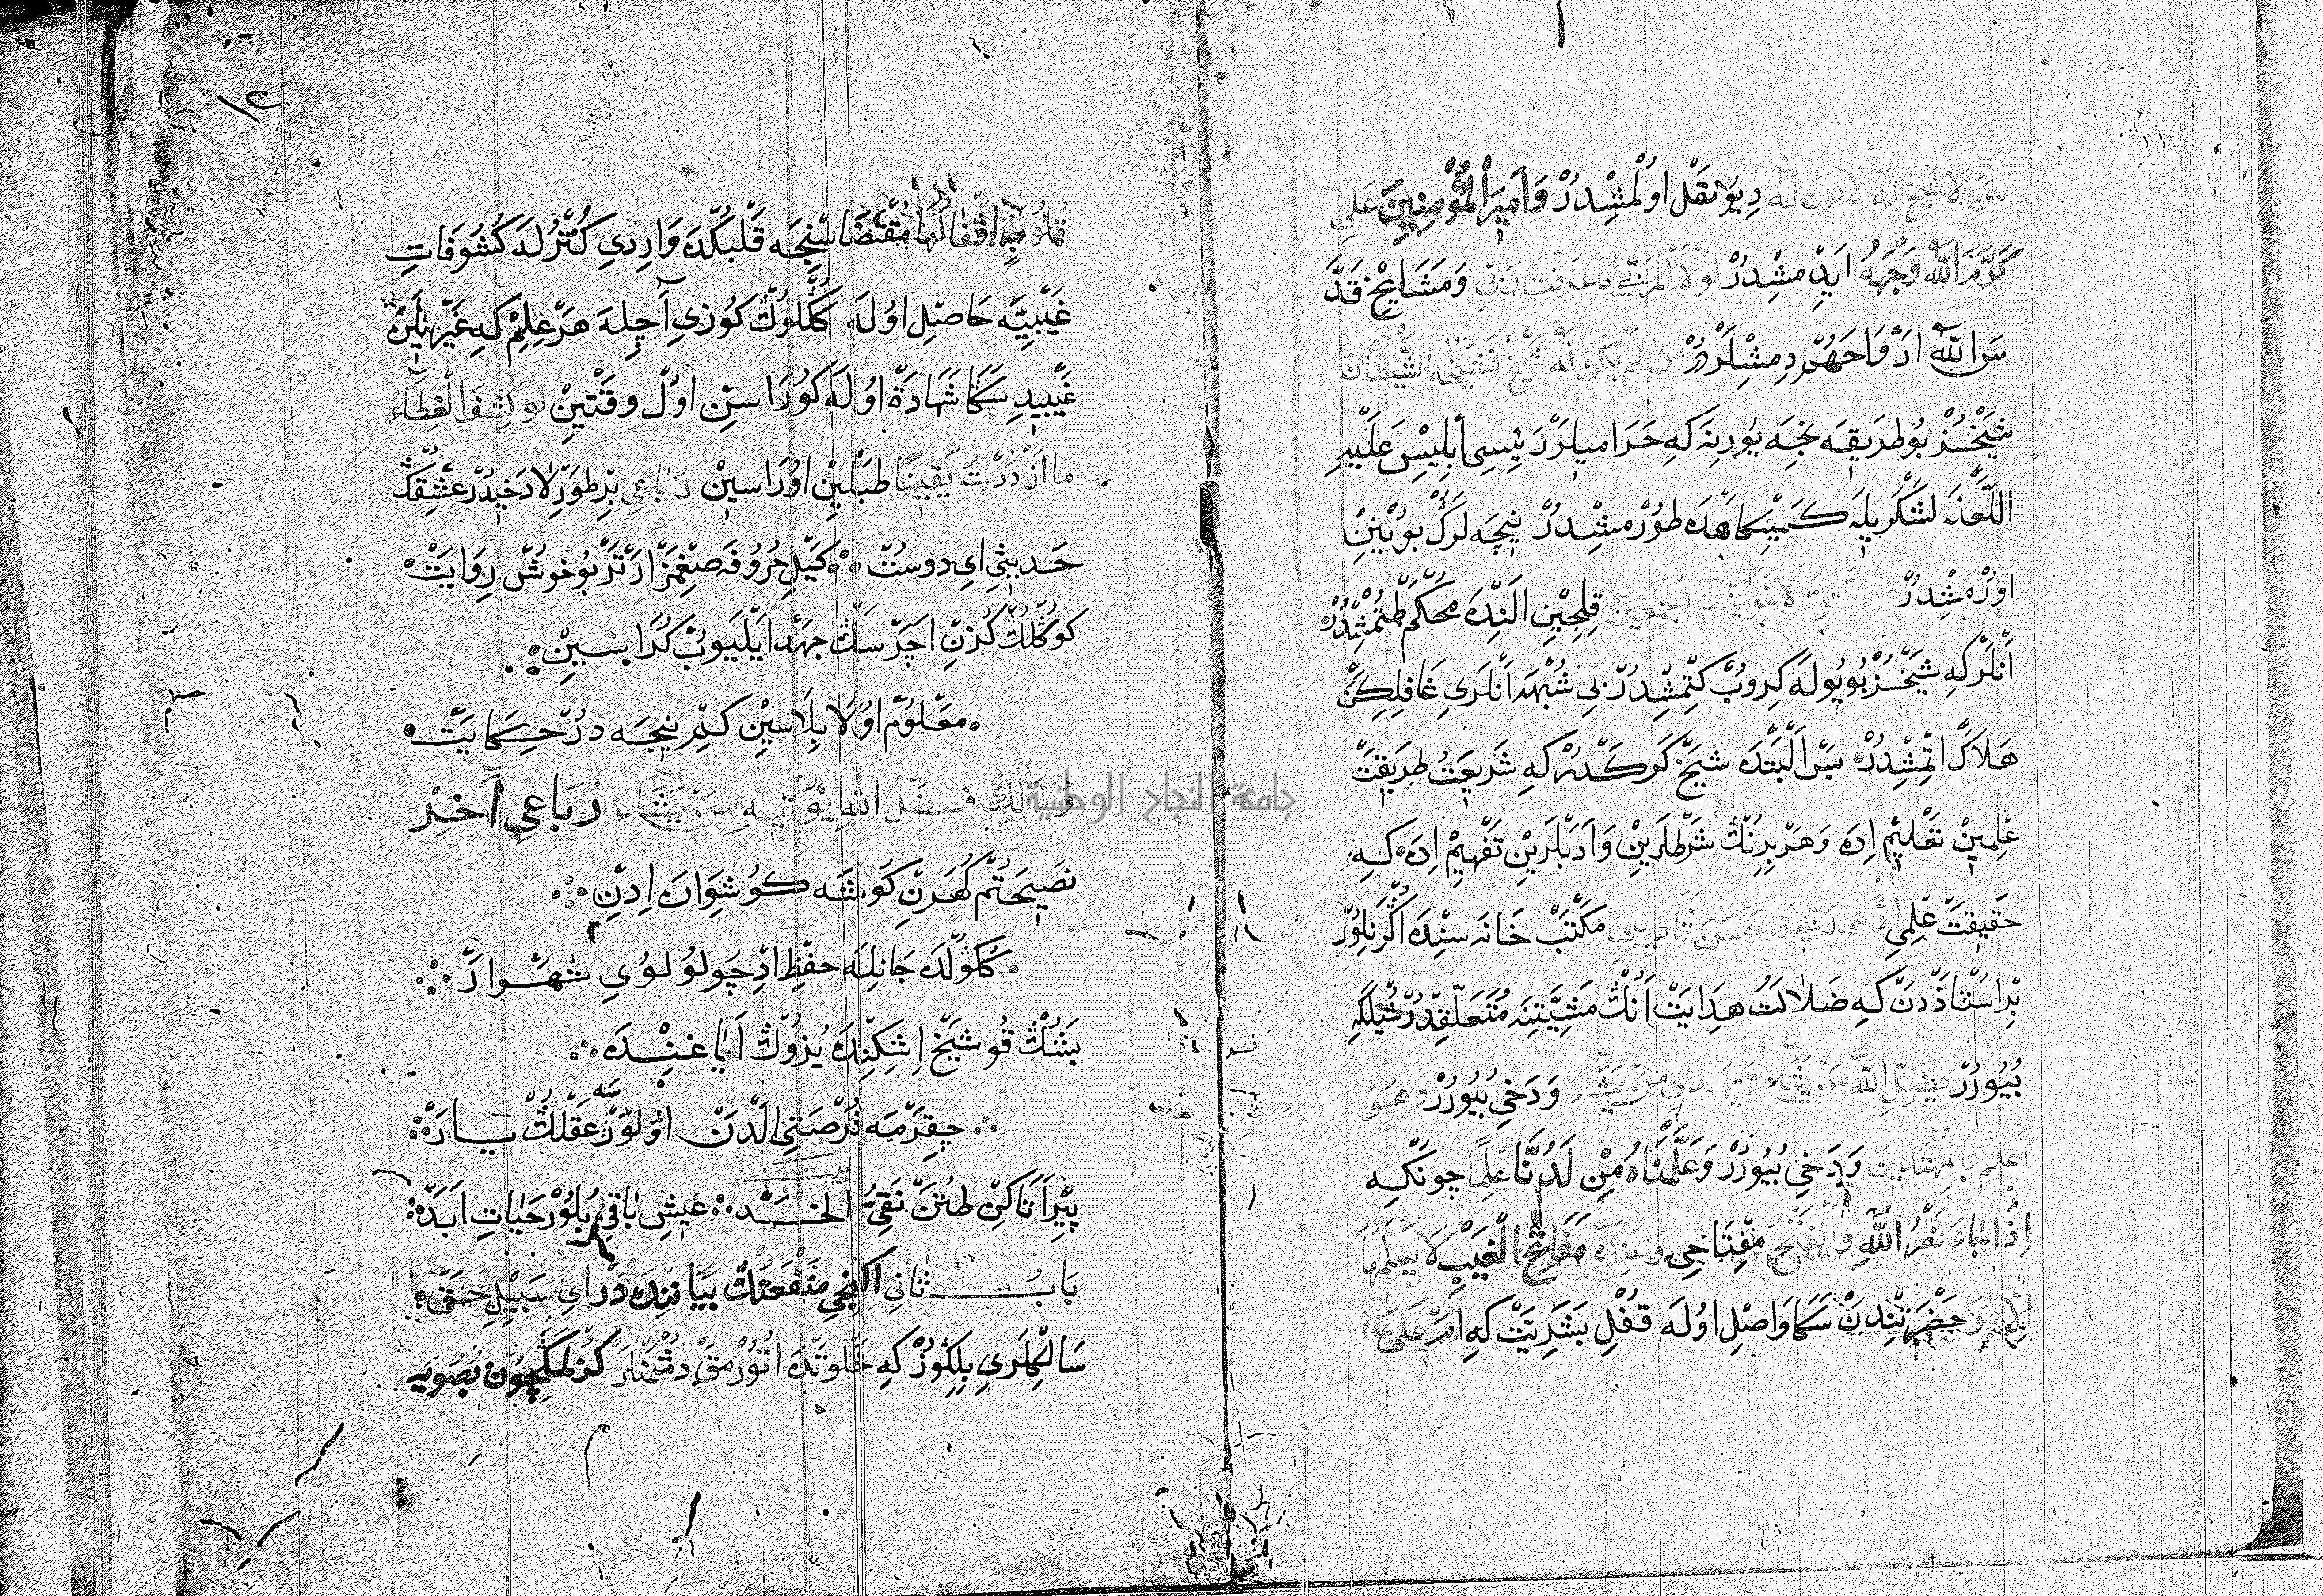 من لا شيخ له لا دين له ديو نقل اولمشدر و امير المؤمنين علي
كرم الله وجهه ايدمشدر لولا المربي ما عرفت ربي و مشايخ قد
س الله ارواحهم دمشلردر من لم يكن له شيخ فشيخه الشيطان
شيخسز بو طريقه نجه يورينه كه حراميلر رئيسى ابليس عليه
اللعنه لشكريله كمينكاهده طورمشدر نيچه لرك بوينين
اورمشدر لاغوينهم اجمعين قلجين النده محكم طتمشدر
انلر كه شيخسز بو يوله كروب كتمشدر بي شبهه انلري غافلكن
هلاك اتمشدر بس البتده شيخ كركدر كه شريعت طريقت
علمين تعليم ايده و هر برينك شرطلرين و ادبلرين تفهيم ايده كه
حقيقت علمي ادبني ربي فاحسن تأديبي مكتب خانه سنده اكرنلور
بر استاذدن كه ضلالت هدايت انك مشيتنه متعلقدر شيلكه
بيورر يضل الله من يشاء ويهدي من يشاء و دخي بيورر وهو
اعلم بالمهتدين و دخي بيورر وعلمناه من لدنا علما چونكه
اذا جاء نصر الله والفتح مفتاحي وعنده مفاتح الغيب لا يعلمها
الا هو حضرتندن سكا واصل اوله قفل بشريت كه ام على
١٢
قلوب اقفالها مقتضاسنجه قلبكده واردي كتر له كشوفات
غيبيه حاصل اوله كوكلوك كوزي آچله هر علم كه غيريلرن
غيبيدر سكا شهادة اوله كوراسن اول وقتين لو كشف الغطاء
ما ازددت يقينا طبلين اوراسين رباعي بر طورلا دخيدر عشقك
حديثي اي دوست كيل حروفه صغمز ارتر بو خوش روايت
كوكلك كزن اچر سك جهد ايليوب كراسين
معلوم اولا بلاسين كلم نيجه در حكايت
ذلك فضل الله يؤتيه من يشاء رباعي آخر
نصيحتم كهرن كوشه كوشوان ادن
كوكلده جانله حفظ اد چو لولوي شهوار
بشك قو شيخ اشكنده يزوك اياغنده
چقرمه فرصتي الدن اولورسه عقلك يار
بيت
پير اتاكن طتن نقي الخد عيش باقي بلور حيات ابد
باب ثاني اكنجي منفعتك بياننده در اي سبيل حق
سالكلري بلكوز كه خلوتده اتورمق دشمنلر كزلمكچون بصويه